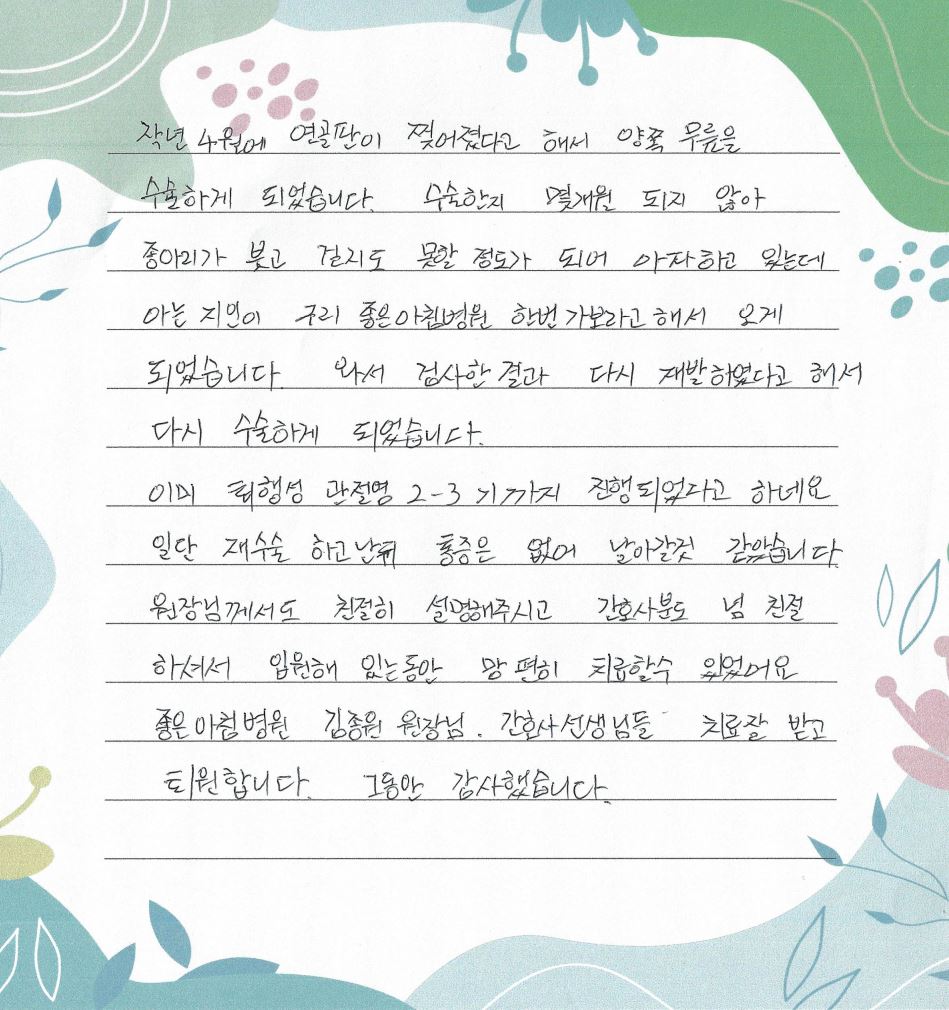 작년 4월에 연골판이 찢어졌다고 해서 양쪽 무릎을
수술하게 되었습니다. 수술한지 몇개월 되지 않아
종아리가 붓고 걷지도 못할 정도가 되어 아파하고 있는데
아는 지인이 구리 좋은아침병원 한번 가보라고 해서 오게
되었습니다. 와서 검사한 결과 다시 재발하였다고 해서
다시 수술하게 되었습니다.
이미 퇴행성 관절염 2-3기까지 진행되었다고 하네요
일단 재수술 하고난뒤 통증은 없어 날아갈것 같았습니다.
원장님께서도 친절히 설명해주시고 간호사분도 넘 친절
하셔서 입원해 있는동안 맘 편히 치료할수 있었어요
좋은아침병원 김종원 원장님. 간호사선생님들 치료잘 받고
퇴원합니다. 그동안 감사했습니다.